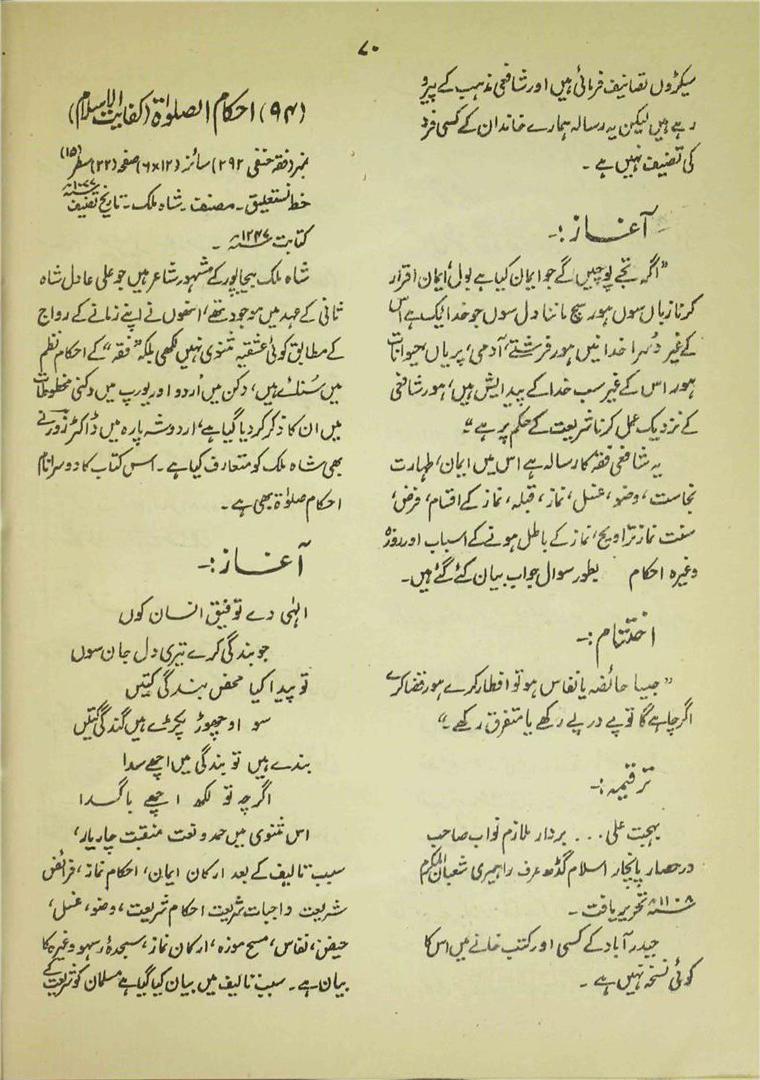 ۷۰
سیکڑوں تصانیف فرمائی ہیں اور شافعی مذہب کے پیرو
رہے ہیں لیکن یہ رسالہ ہمارے خاندان کے کسی فرد
کی تصنیف نہیں ہے ۔
آغاز :۔
”اگر تجے پوچھیں گے جو ایمان کیا ہے بول، ایمان اقرار
کرنا زباں سوں ہور سچ ماننا دل سوں جو خدا ایک ہے اس
کے غیر دُسرا خدا نیں ہور فرشتے، آدمی، پریاں، حیوانات
ہور اس کے غیر سب خدا کے پیدایش ہیں، ہور شافعی
کے نزدیک عمل کرنا شریعت کے حکم پر ہے“
یہ شافعی فقہ کا رسالہ ہے اس میں ایمان، طہارت
نجاست، وضو، غسل، نماز، قبلہ، نماز کے اقسام، فرض،
سنت نماز تراویح، نماز کے باطل ہونے کے اسباب اور روزہ
وغیرہ احکام بطور سوال جواب بیان کئے گئے ہیں۔
اختتام :۔
”جیسا حائضہ یا نفاس ہو تو افطار کرے ہور قضا کرے
اگر چاہے گا تو پے درپے رکھے یا متفرق رکھے ۔“
ترقیمہ :۔
بہجت علی ... بردار ملازم نواب صاحب
در حصار پانچار اسلام گڈھ عرف راہیری شعبان المکرم
۱۱۰۸ھ تحریر یافت ۔
حیدرآباد کے کسی اور کتب خانے میں اس کا
کوئی نسخہ نہیں ہے ۔
(۹۴) احکام الصلوٰۃ (کفایت الاسلام)
نمبر (فقہ حنفی ۲۹۲) سائز (۱۲×۶) صفحہ (۲۲) سطر (۱۵)
خط نستعلیق ۔ مصنف ۔ شاہ ملک ۔ تاریخ تصنیف ۱۰۷۷ھ
کتابت ۱۲۴۷ھ ۔
شاہ ملک بیجاپور کے مشہور شاعر ہیں جو علی عادل شاہ
ثانی کے عہد میں موجود تھے، انھوں نے اپنے زمانے کے رواج
کے مطابق کوئی عشقیہ مثنوی نہیں لکھی بلکہ ”فقہ“ کے احکام نظم
میں سُنائے ہیں، دکن میں اُردو اور یورپ میں دکنی مخطوطات
میں ان کا ذکر کر دیا گیا ہے، اردو شہ پارہ میں ڈاکٹر زور نے
بھی شاہ ملک کو متعارف کیا ہے ۔ اس کتاب کا دوسرا نام
احکام صلوٰۃ بھی ہے ۔
آغاز :۔
الٰہی دے توفیق انسان کوں
جو بندگی کرے تیری دل جان سوں
تو پیدا کیا محض بندگی کتیں
سو او چھوڑ پکڑے ہیں گندگی کتیں
بندے ہیں تو بندگی میں اچھے سدا
اگرچہ تو لکھ اچھے باگدا
اس مثنوی میں حمد و نعت منقبت چاریار،
سبب تالیف کے بعد ارکان ایمان، احکام نماز، فرائض
شریعت واجبات شریعت احکام شریعت، وضو، غسل،
حیض، نفاس، مسح موزہ، ارکان نماز، سجدۂ سہو وغیرہ کا
بیان ہے ۔ سبب تالیف میں بیان کیا گیا ہے مسلمان کو شریعت کے